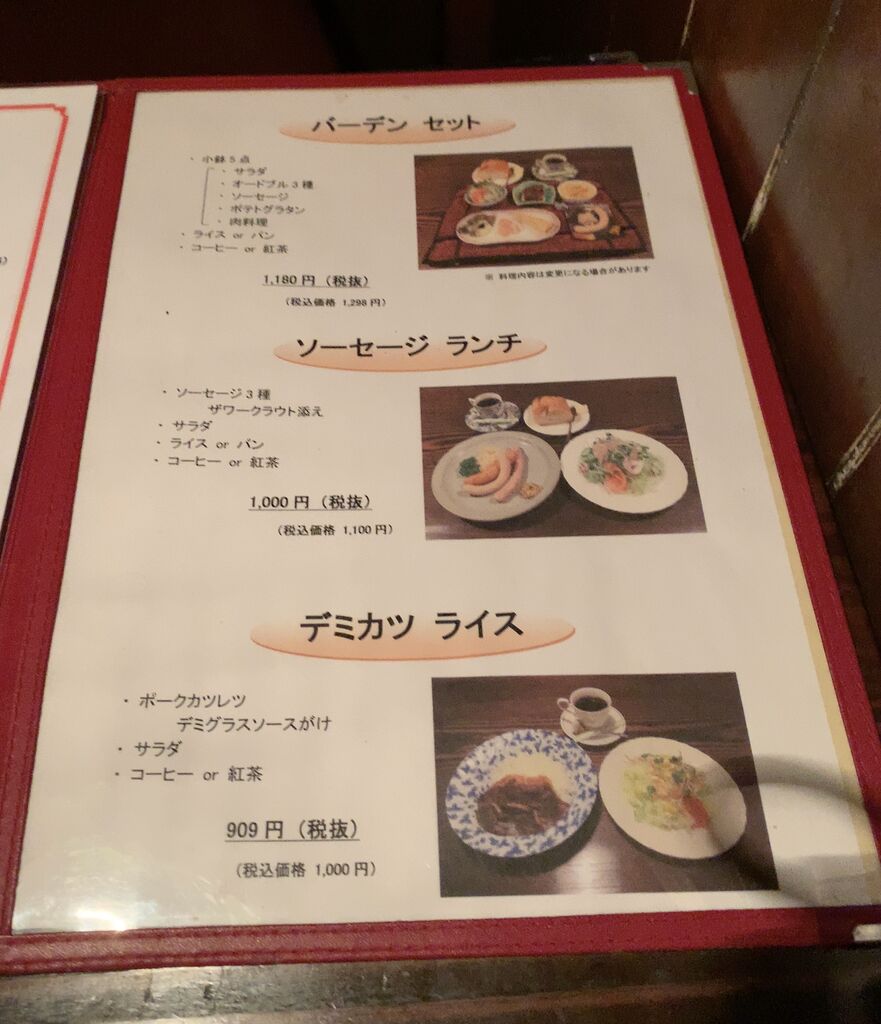 バーデン セット
・小鉢5点
・サラダ
・オードブル3種
・ソーセージ
・ポテトグラタン
・肉料理
・ライス or パン
・コーヒー or 紅茶
1,180 円 （税抜）
（税込価格 1,298 円）
※ 料理内容は変更になる場合があります
ソーセージ ランチ
・ソーセージ3種
ザワークラウト添え
・サラダ
・ライス or パン
・コーヒー or 紅茶
1,000 円 （税抜）
（税込価格 1,100 円）
デミカツ ライス
・ポークカツレツ
デミグラスソースがけ
・サラダ
・コーヒー or 紅茶
909 円 （税抜）
（税込価格 1,000 円）